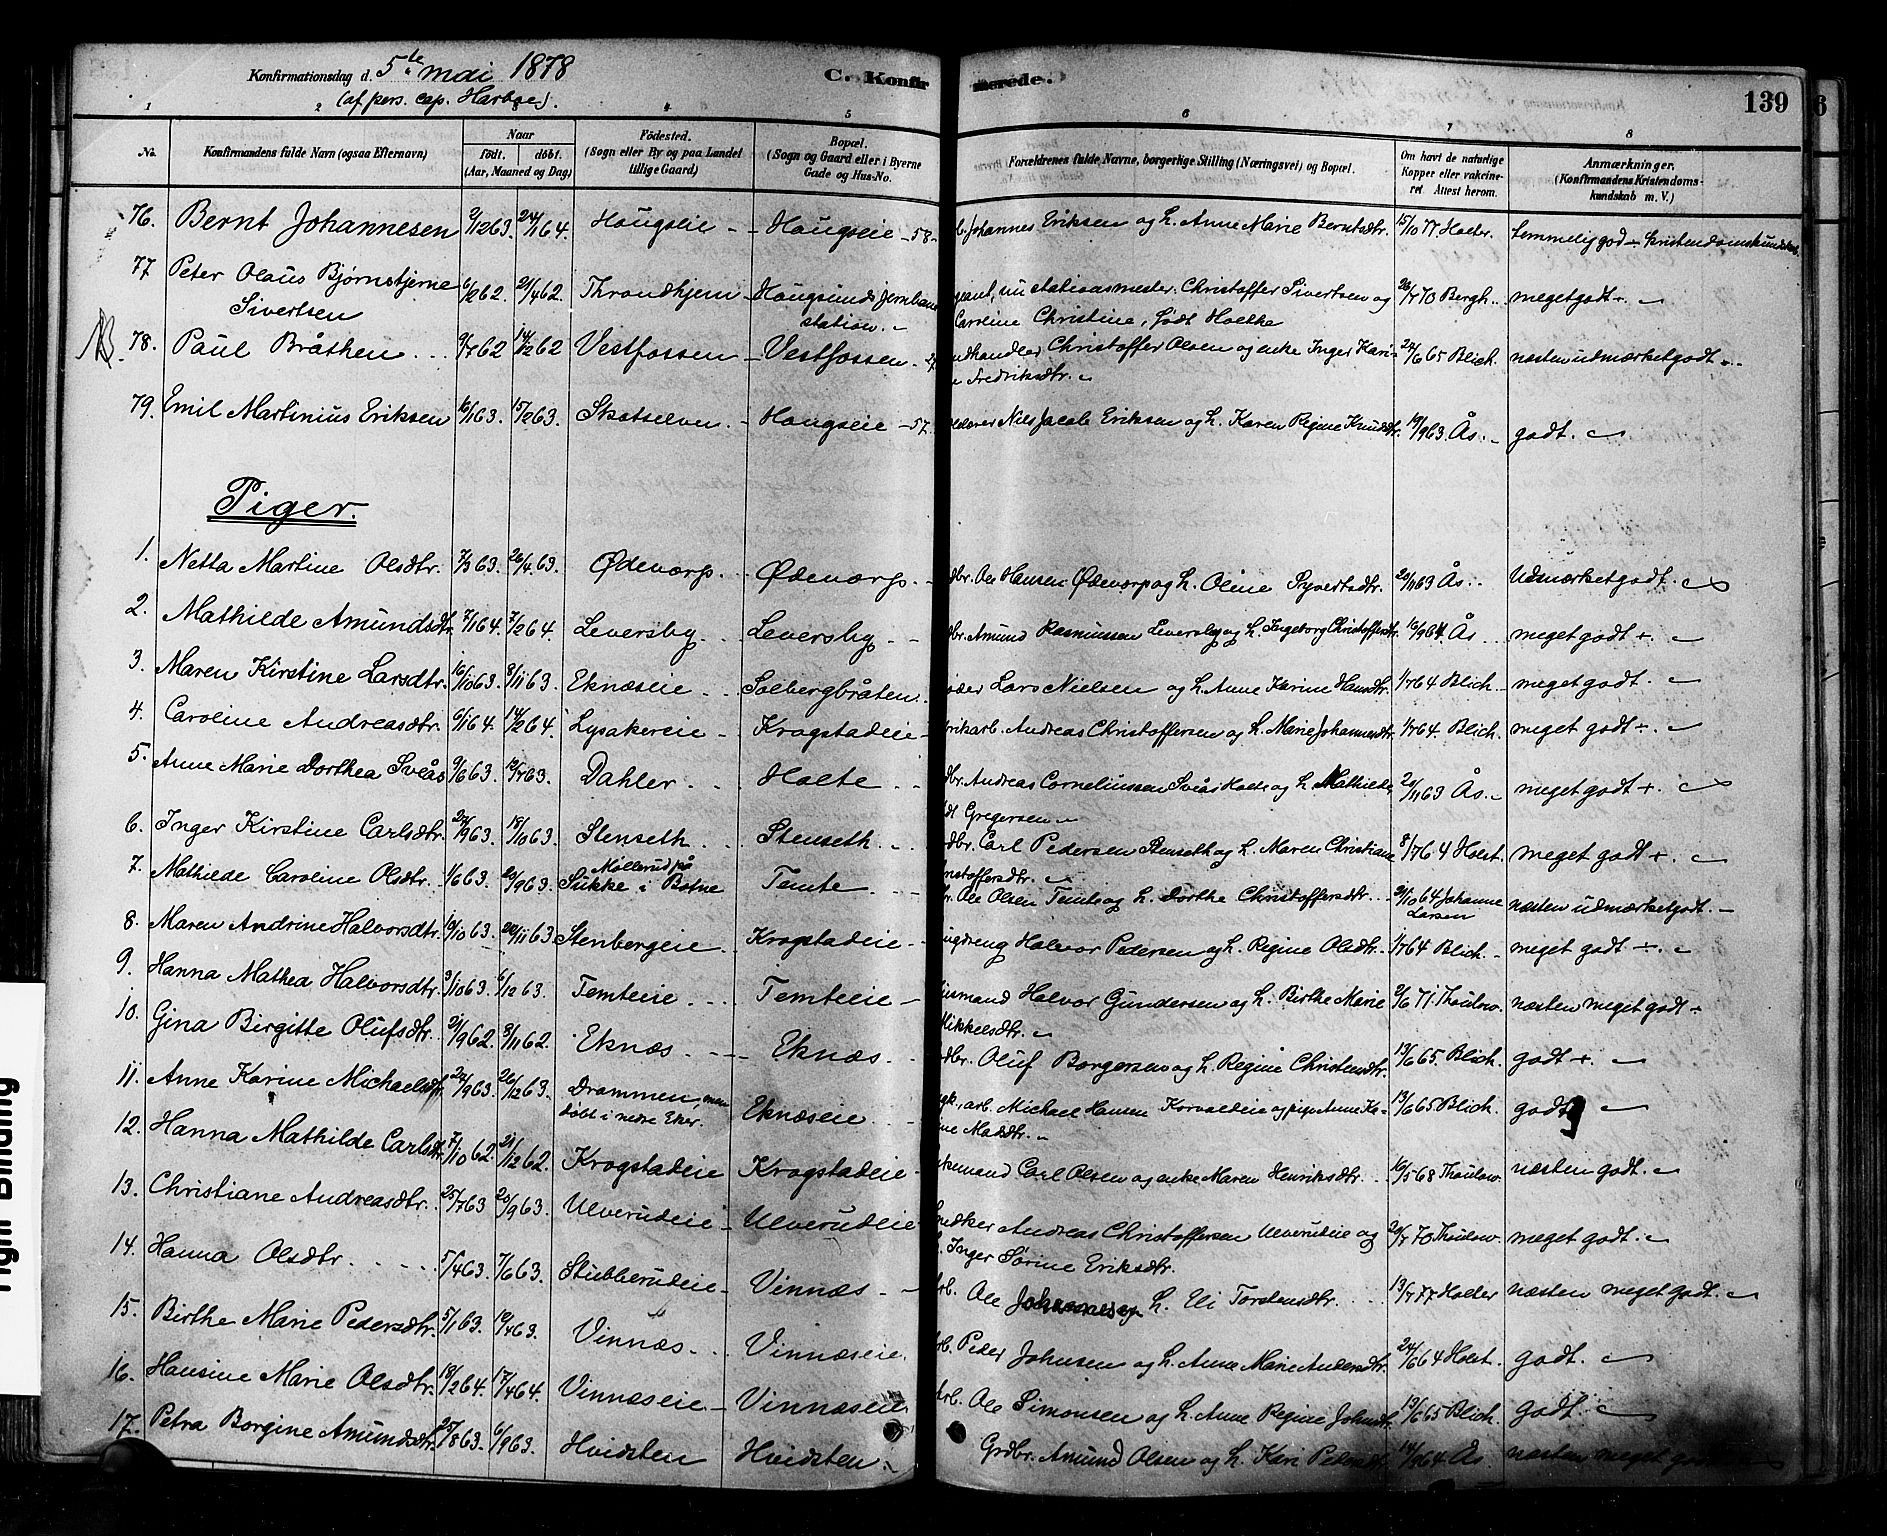 Konfirmationsdag d. 5te mai 1878 C. Konfirmerede. 139
(af pers. cap. Harboe).
1 2 3 4 5 6 7 8
No. Konfirmandens fulde Navn (ogsaa Efternavn) Naar født. døbt. (Aar, Maaned og Dag) Fødested. (Sogn eller By og paa Landet tillige Gaard) Bopæl. (Sogn og Gaard eller i Byerne Gade og Hus-No. Forældrenes fulde Navne, borgerlige Stilling (Næringsvei) og Bopæl. Om havt de naturlige Kopper eller vakcineret. Attest herom. Anmærkninger, (Konfirmandens Kristendomskundskab m. V.)
76. Bernt Johannesen 9/12 63. 24/1 64. Hougseie - Hougseie - 58 Johannes Eriksen og h. Anne Marie Berntsdtr. 15/10 77 Holter. temmelig god Kristendomskundskab
77 Peter Olaus Bjørnstjerne 6/2 62. 21/4 62. Throndhjem - Hougsunds jernbane nu stationsmester Christoffer Sivertsen og 26/7 70 Bergh. meget godt
Sivertsen station. Caroline Christine, født Holtke
NB. 78. Paul Bråthen 9/7 62 14/12 62 Vestfossen - Vestfossen ndhandler Christoffer Olsen og enke Inger Kari- 24/6 65 Blich. næsten udmærket godt
ne Fredriksdtr.
79. Emil Martinius Eriksen 16/1 63. 15/2 63. Skotselven - Hougseie - 57. Nils Jacob Eriksen og h. Karen Regine Knudsdtr. 19/9 63. Ås. godt.
Piger.
1. Netta Martine Olsdtr. 7/3 63. 26/4 63. Ødevorp. Ødevorp. dbr. Ole Hansen Ødevorp og h. Oline Syvertsdtr. 20/11 63 Ås. Udmærket godt.
2. Mathilde Amundsdtr. 7/1 64. 7/2 64. Leversby. Leversby. dbr. Amund Rasmussen Leversby og h. Ingeborg Christoffersdtr. 16/9 64 Ås meget godt +.
3. Maren Kirstine Larsdtr. 16/10 63. 8/11 63. Eknæseie Solbergbråten. Lars Nielsen og h. Anne Karine Hansdtr. 1/7 64 Blich. meget godt.
4. Caroline Andreasdtr. 6/1 64. 14/2 64. Lysakereie Krogstadeie rikarb. Andreas Christoffersen og h. Marie Johannesdtr. 1/7 64. Blich. meget godt.
5. Anne Marie Dorthea Sveås 9/6 63. 12/7 63. Dahler. Holte dbr. Andreas Corneliussen Sveås Holte og h. Mathilde 20/11 63 Ås. meget godt +.
dt Gregersen
6. Inger Kirstine Carlsdtr. 24/9 63. 18/10 63. Stenseth Stenseth. dbr. Carl Pedersen Stenseth og h. Maren Christiane 8/7 64 Holst. meget godt +.
nstoffersdtr.
7. Mathilde Caroline Olsdtr. 1/6 63. 20/9 63. Møllerud på Sukke i Botne Temte Ole Olsen Temte og h. Dorthe Christoffersdtr. 2/10 64 Johanne Larsen næsten udmærket godt.
8. Maren Andrine Halvorsdtr. 10/10 63. 20/11 63 Stenbergeie. Krogstadeie ngdreng Halvor Pedersen og h. Regine Olsdtr. 1/7 64 Blich. meget godt.
9. Hanna Mathea Halvorsdtr. 3/10 63. 6/12 63. Temteie Temteie - usmand Halvor Gundersen og h. Birthe Marie 2/6 71. Thaulow. næsten meget godt
Mikkelsdtr.
10. Gina Birgitte Olufsdtr. 21/9 62. 9/11 62. Eknæs Eknæs. dbr. Oluf Borgersen og h. Regine Christensdtr. 13/6 65. Blich. godt +.
11. Anne Karine Michaelsdtr. 24/9 63. 26/12 63. Drammen, men døbt i nedre Eker. Eknæseie arb. Michael Hansen Korvaldeie og pige Anne Ka- 13/6 65 Blich. godt
ne Madsdtr.
12. Hanna Mathilde Carlsdtr. 7/10 62. 21/12 62. Krogstadeie Krogstadeie Carl Olsen og enke Maren Henriksdtr. 16/5 68 Thaulow. næsten godt.
13. Christiane Andreasdtr. 25/7 63 20/9 63. Ulverudeie Ulverudeie nedker Andreas Christoffersen Ulverudeie og 20/7 70 Thaulow. meget godt.
Inger Sørine Eriksdtr.
14. Hanna Olsdtr 5/4 63. 7/6 63. Stubberudeie Vinnæs Ole Johannesen og h. Eli Torstensdtr. 13/7 77 Holter næsten meget godt.
15. Birthe Marie Pedersdtr. 5/1 63. 19/4 63. Vinnæs. Vinnæseie. Peder Johnsen og h. Anne Marie Andersdtr. 24/6 64 Holst. godt.
16. Hansine Marie Olsdtr. 18/2 64. 17/4 64. Vinnæseie Vinnæseie arb. Ole Simonsen og h. Anne Regine Johnsdtr. 13/6 65 Blich. godt.
17. Petra Borgine Amundsdtr. 25/8 63. 6/9 63. Hvidsten Hvidsten. Grdbr. Amund Olsen og h. Kari Pedersdtr. 14/9 64 Ås. næsten meget godt
Right Binding